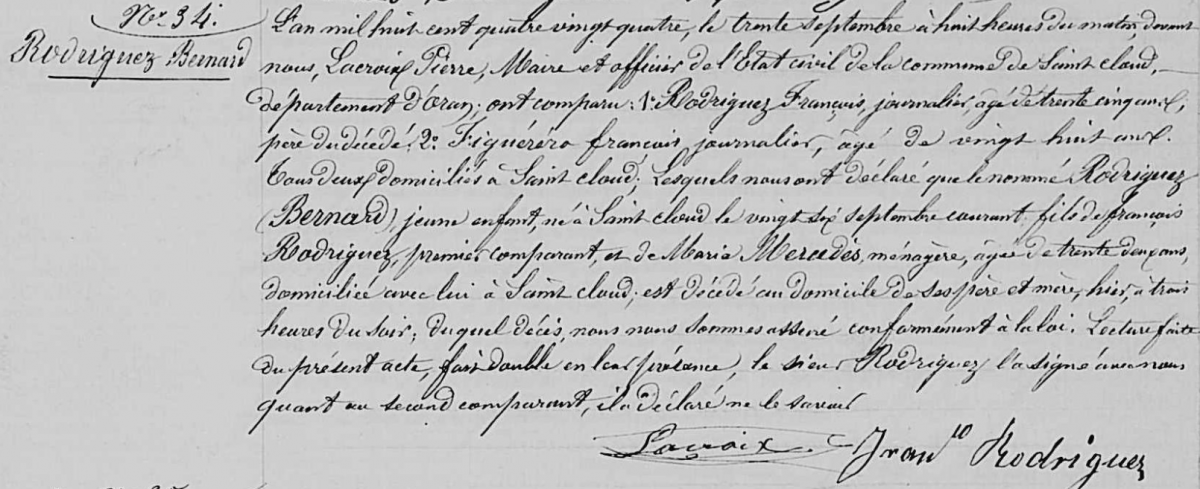 No 34.
Rodriguez Bernard
L'an mil huit cent quatre vingt quatre, le trente septembre à huit heures du matin, devant
nous, Lacroix Pierre, Maire et officier de l'Etat civil de la commune de Saint cloud,
département d'Oran; ont comparu: 1o Rodriguez François, journalier, âgé de trente cinq ans,
père du décédé. 2o Figuéréro françois, journalier, âgé de vingt huit ans.
Tous deux domiciliés à Saint cloud; Lesquels nous ont déclaré que le nommé Rodriguez
(Bernard) jeune enfant, né à Saint cloud le vingt six septembre courant fils de françois
Rodriguez, premier comparant, et de Maria Mercédès, ménagère, âgée de trente deux ans,
domiciliée avec lui à Saint cloud; est décédé au domicile de ses père et mère, hier, à trois
heures du soir; duquel décès, nous nous sommes assuré conformément à la loi. Lecture faite
du présent acte, fait double en leur présence, le sieur Rodriguez l'a signé avec nous
quant au second comparant, il a déclaré ne le savoir
Lacroix Franco Rodriguez